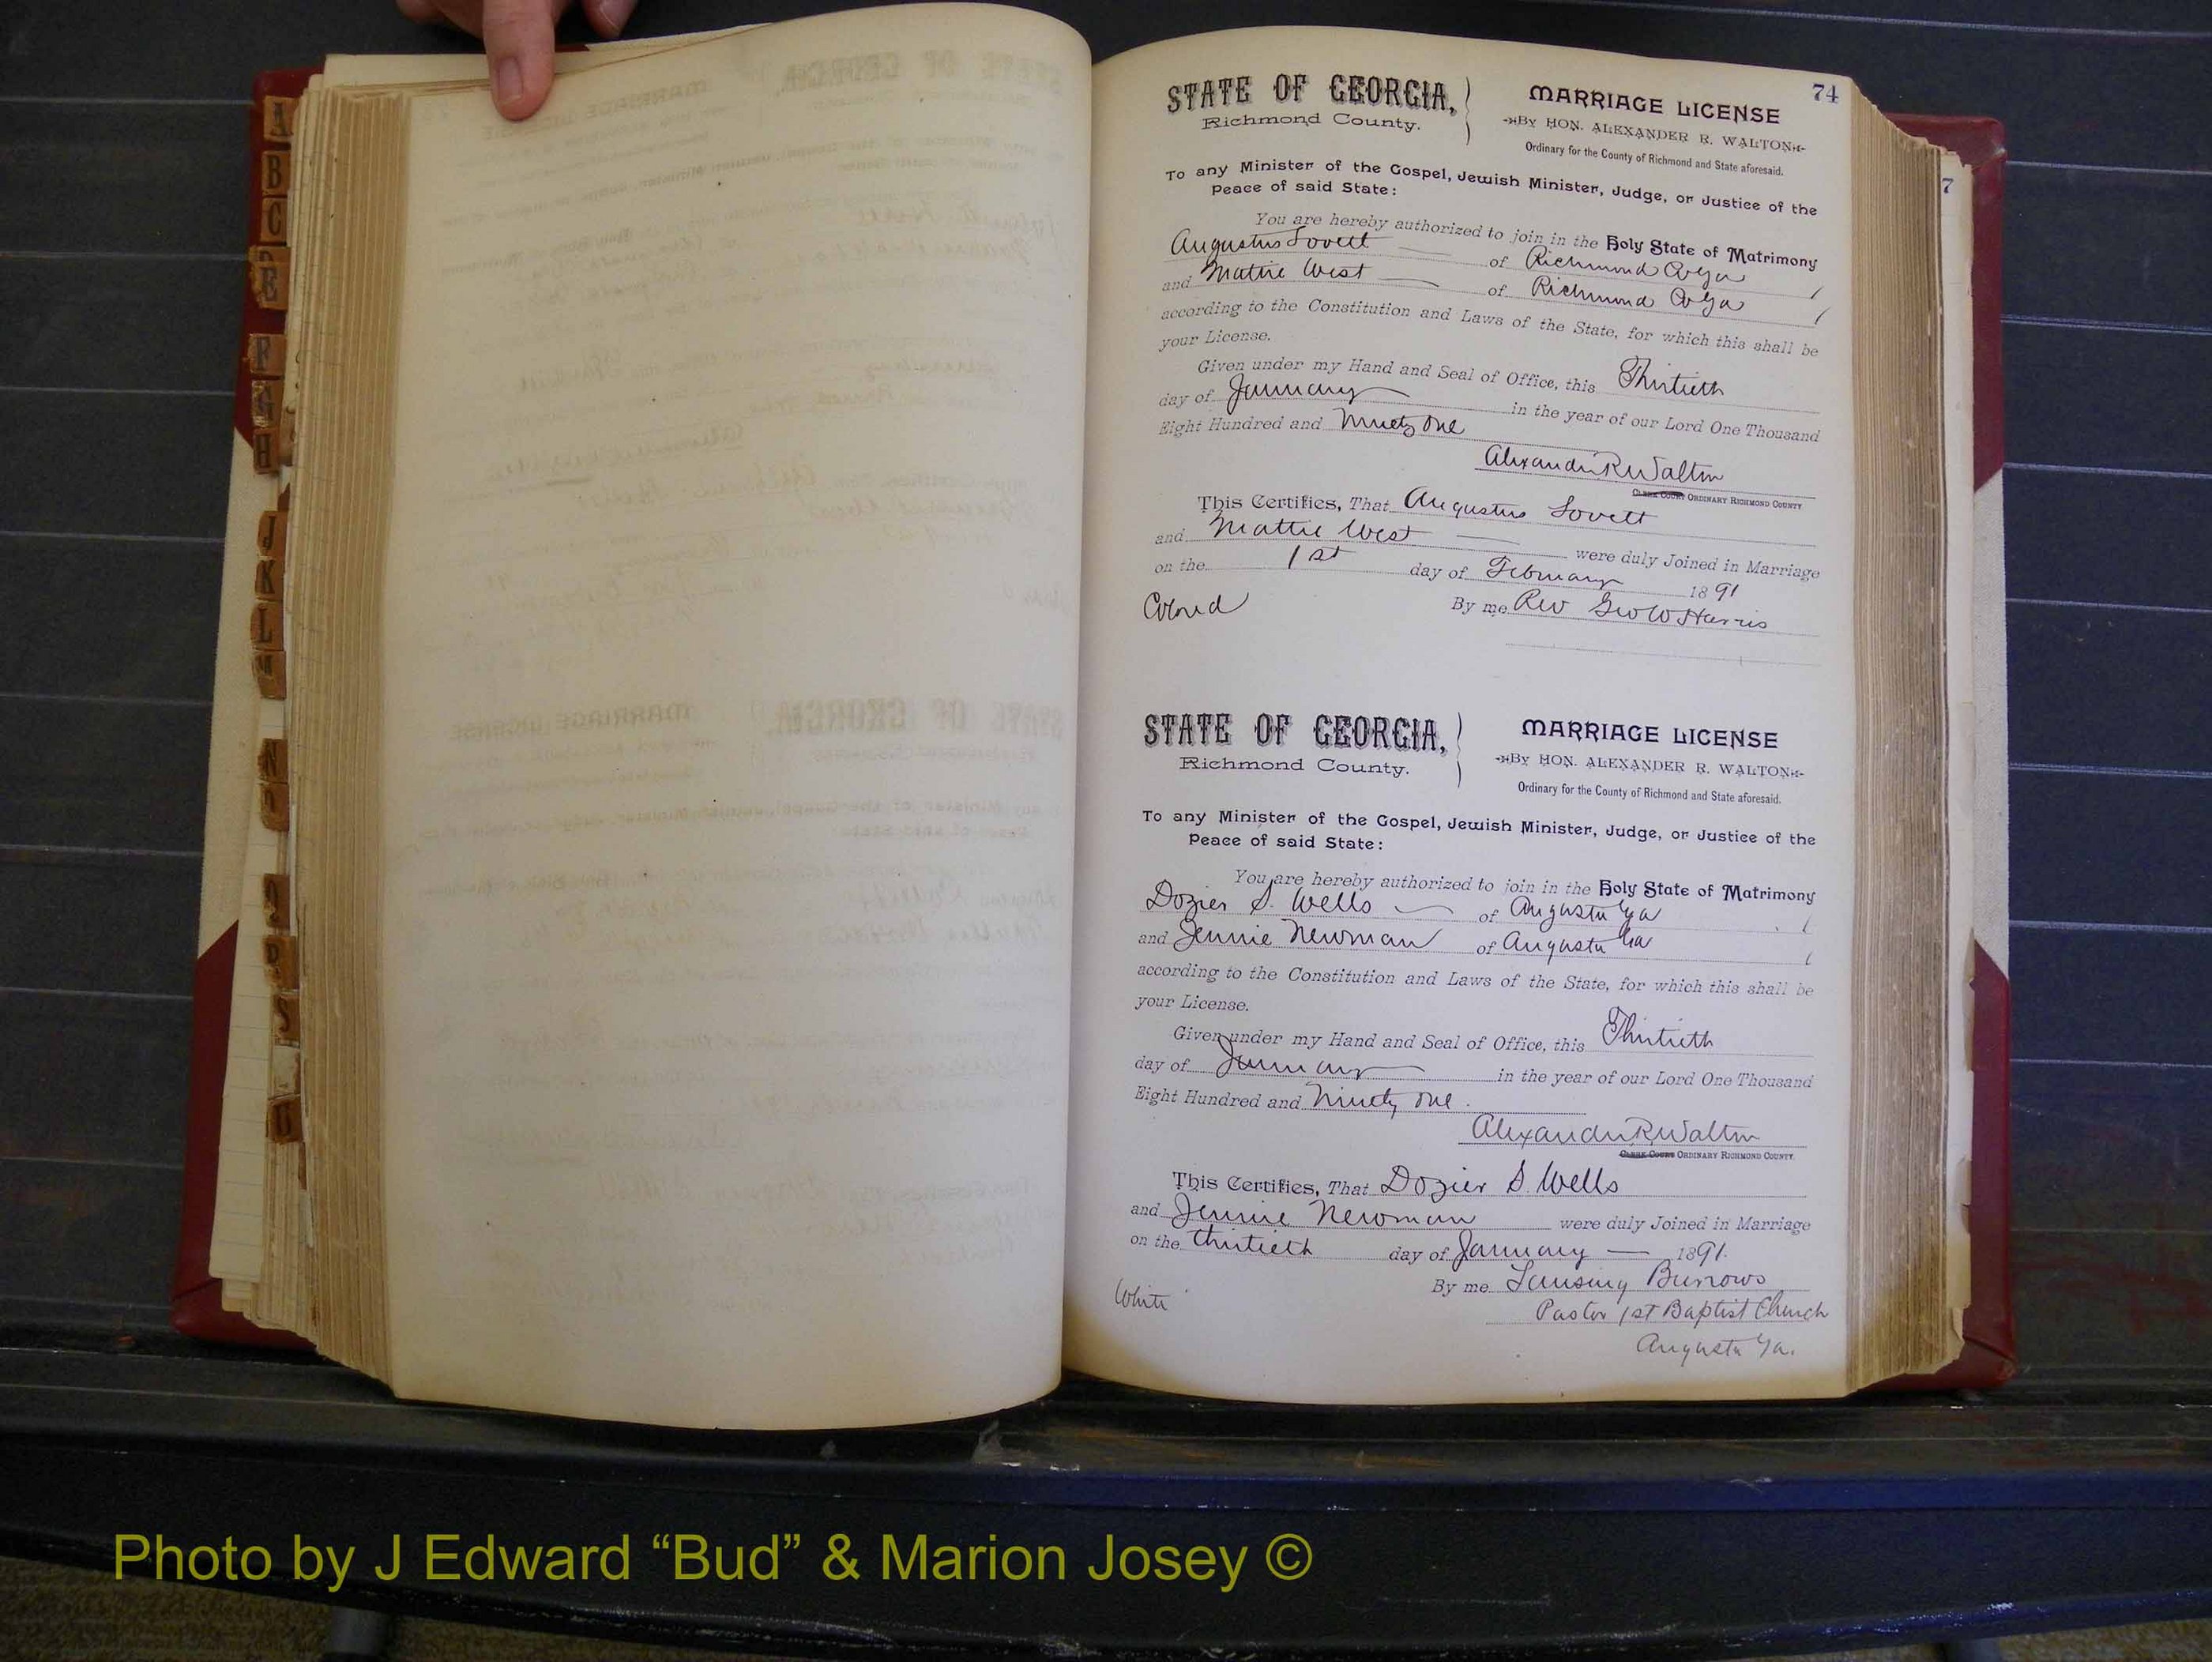 A
B
C
D
E
F
G
H
J
K
L
M
N
O
Q
R
S
U
74
7
STATE OF GEORGIA,
Richmond County.
MARRIAGE LICENSE
By HON. ALEXANDER R. WALTON
Ordinary for the County of Richmond and State aforesaid.
To any Minister of the Gospel, Jewish Minister, Judge, or Justice of the
Peace of said State:
You are hereby authorized to join in the Holy State of Matrimony
Augustus Lovett of Richmond Co Ga
and Mattie West of Richmond Co Ga
according to the Constitution and Laws of the State, for which this shall be
your License.
Given under my Hand and Seal of Office, this Thirtieth
day of January in the year of our Lord One Thousand
Eight Hundred and Ninety One
Alexander R Walton
Clerk Court ORDINARY RICHMOND COUNTY
This Certifies, That Augustus Lovett
and Mattie West were duly Joined in Marriage
on the 1st day of February 1891
Colord By me Rev Geo W Harris
STATE OF GEORGIA,
Richmond County.
MARRIAGE LICENSE
By HON. ALEXANDER R. WALTON
Ordinary for the County of Richmond and State aforesaid.
To any Minister of the Gospel, Jewish Minister, Judge, or Justice of the
Peace of said State:
You are hereby authorized to join in the Holy State of Matrimony
Dozier S. Wells of Augusta Ga
and Jennie Newman of Augusta Ga
according to the Constitution and Laws of the State, for which this shall be
your License.
Given under my Hand and Seal of Office, this Thirtieth
day of January in the year of our Lord One Thousand
Eight Hundred and Ninety one.
Alexander R. Walton
Clerk Court ORDINARY RICHMOND COUNTY.
This Certifies, That Dozier S. Wells
and Jennie Newman were duly Joined in Marriage
on the thirtieth day of January 1891.
White By me Lansing Burrows
Pastor 1st Baptist Church
Augusta Ga.
Photo by J Edward “Bud” & Marion Josey ©